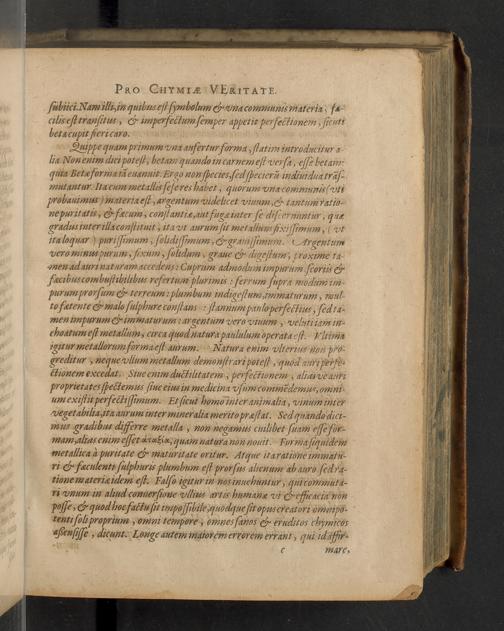 PRO CHYMIÆ VERITATE.
subiici. Nam illi, in quibus est symbolum & vna communis materia, fa-
cilis est transitus, & imperfectum semper appetit perfectionem, sicuti
beta cupit fieri caro.
Quippe quam primum vna aufertur forma, statim introducitur a-
lia Non enim dici potest, betam quando in carnem est versa, esse betam:
quia Betæ forma iā euanuit. Ergo non species, sed specierū indiuidua trās-
mutantur. Ita cum metallis sese res habet, quorum vna communis (vti
probauimus) materia est, argentum videlicet viuum, & tantum ratio-
ne puritatis, & fæcum, constantiæ, aut fugæ inter se discernuntur, quæ
gradus inter illa constituit, ita vt aurum sit metallum fixissimum, (vt
ita loquar) purissimum, solidissimum, & grauissimum. Argentum
vero minus purum, fixum, solidum, graue & digestum, proxime ta-
men ad auri naturam accedens: Cuprum admodum impurum scoriis &
fæcibus combustibilibus refertum plurimis: ferrum supra modum im-
purum prorsum & terreum: plumbum indigestum, immaturum, mul-
to fætente & malo sulphure constans: stannum paulo perfectius, sed ta-
men impurum & immaturum: argentum vero viuum, veluti iam in-
choatum est metallum, circa quod natura paululum operata est. Vltima
igitur metallorum forma est aurum. Natura enim vlterius non pro-
greditur, neque vllum metallum demonstrari potest, quod auri perfe-
ctionem excedat. Siue enim ductilitatem, perfectionem, aliasve auri
proprietates spectemus siue eius in medicina vsum commēdemus, omni-
um existit perfectissimum. Et sicut homo inter animalia, vinum inter
vegetabilia, ita aurum inter mineralia merito præstat. Sed quando dici-
mus gradibus differre metalla, non negamus cuilibet suam esse for-
mam, alias enim esset ἀταξία, quam natura non nouit. Forma siquidem
metallica à puritate & maturitate oritur. Atque ita ratione immatu-
ri & fæculenti sulphuris plumbum est prorsus alienum ab auro, sed ra-
tione materiæ idem est. Falso igitur in nos inuehuntur, qui commuta-
ri vnum in aliud conuersione vllius artis humanæ vi & efficacia non
posse, & quod hoc factu sit impossibile, quodque sit opus creatori omnipo-
tenti soli proprium, omni tempore, omnes sanos & eruditos chymicos
assensisse, dicunt. Longe autem maiorem errorem errant, qui id affir-
c mare,